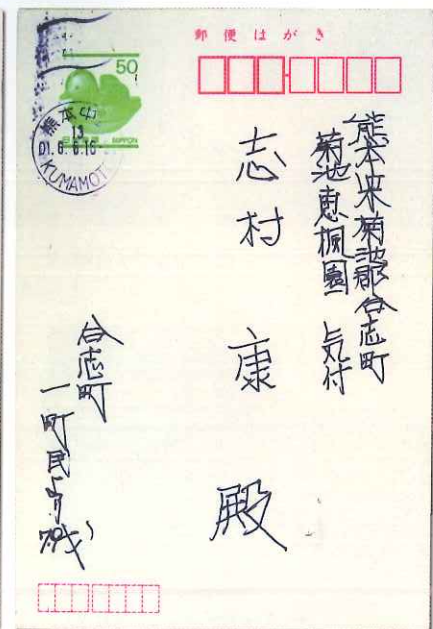 郵便はがき
50
日本郵便
NIPPON
熊本中
13
01.6.6.16
KUMAMOTO
熊本県菊池郡合志町
菊池恵楓園 気付
志村 康 殿
合志町
一町民より